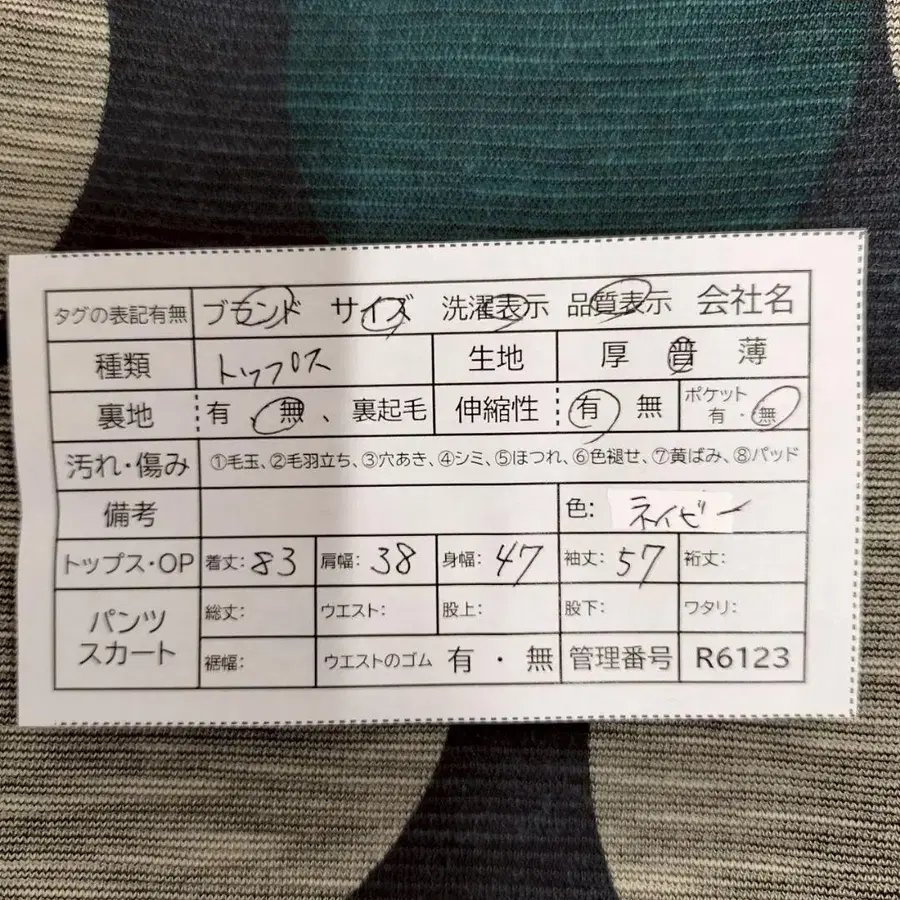 タグの表記有無 ブランド サイズ 洗濯表示 品質表示 会社名
種類 トップス 生地 厚 普 薄
裏地 有、無、裏起毛 伸縮性 有 無 ポケット 有・無
汚れ・傷み ①毛玉、②毛羽立ち、③穴あき、④シミ、⑤ほつれ、⑥色褪せ、⑦黄ばみ、⑧パッド
備考 色: ネイビー
トップス・OP 着丈:83 肩幅:38 身幅:47 袖丈:57 裄丈:
パンツ スカート 総丈: ウエスト: 股上: 股下: ワタリ:
裾幅: ウエストのゴム 有・無 管理番号 R6123